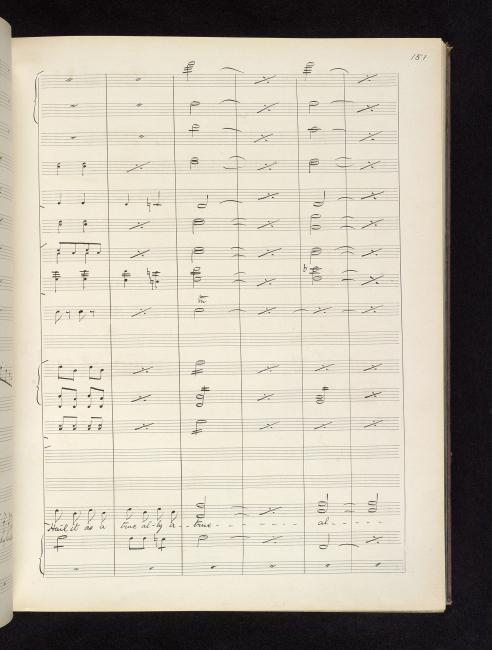 151
tr
Hail it as a true al-ly a-true - - - - - - - - al - - - - -